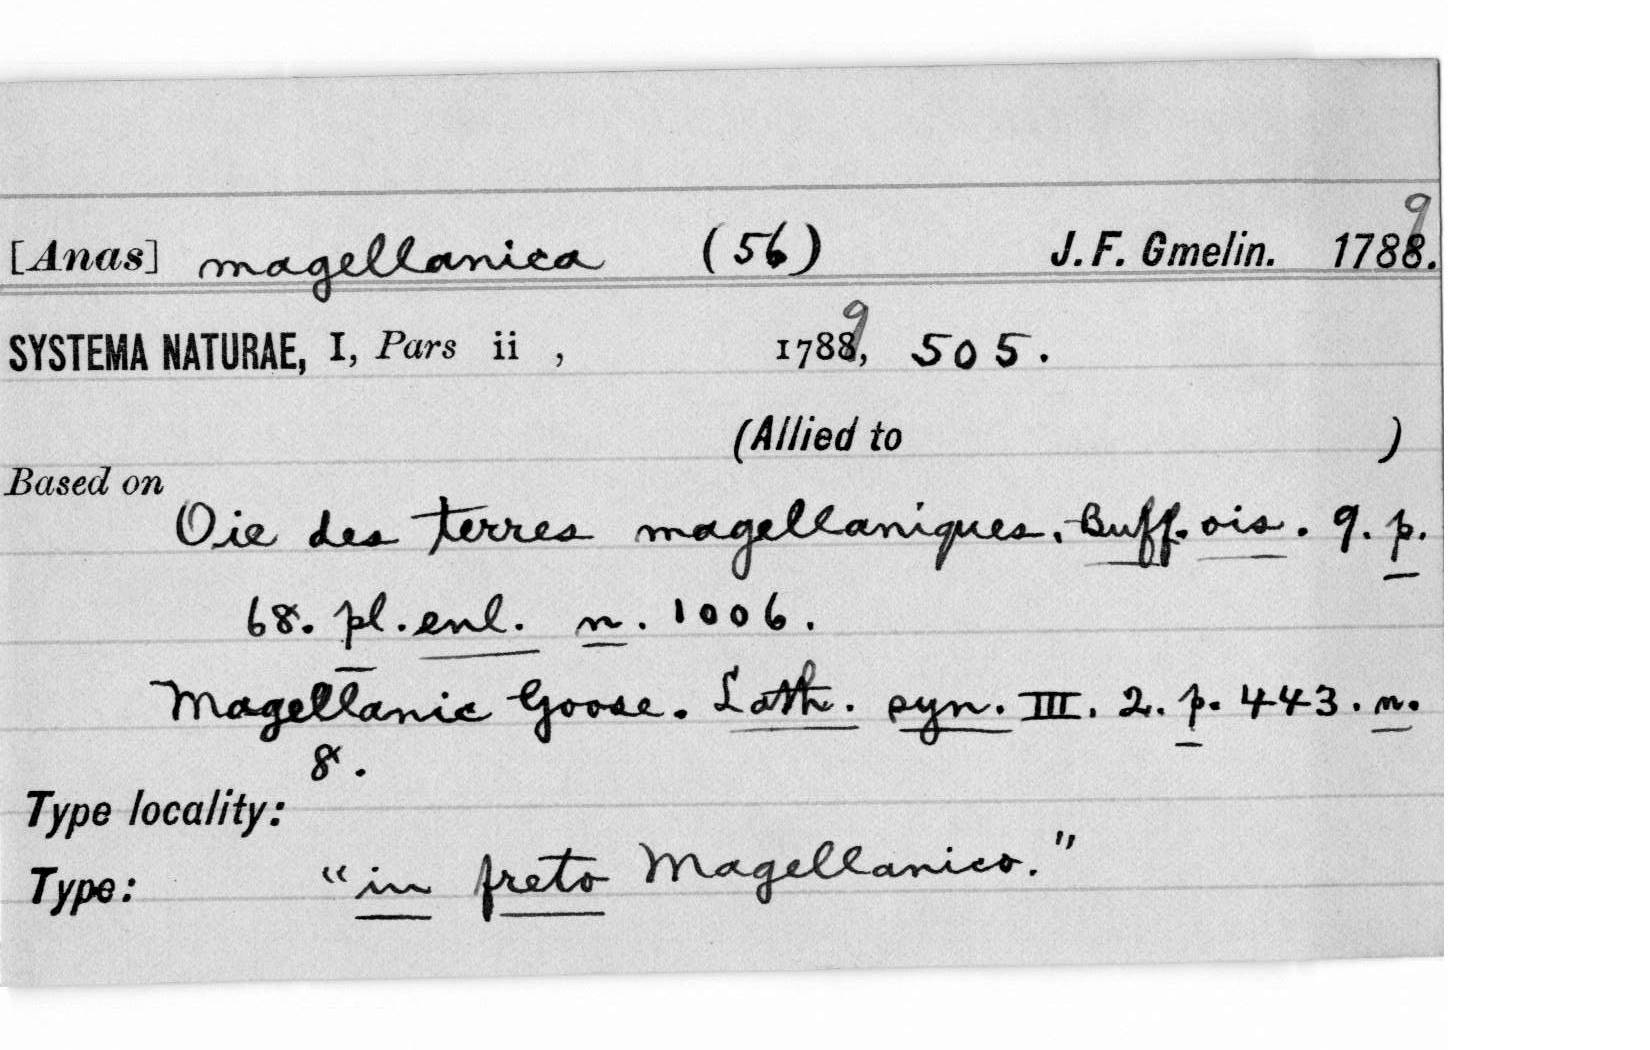 [Anas] magellanica (56) J. F. Gmelin. 1788. 9
SYSTEMA NATURAE, I, Pars ii , 1788, 9 505.
(Allied to )
Based on
Oie des terres magellaniques. Buff. ois. 9. p.
68. pl. enl. n. 1006.
Magellanic Goose. Lath. syn. III. 2. p. 443. n.
8.
Type locality:
Type: "in freto Magellanico."